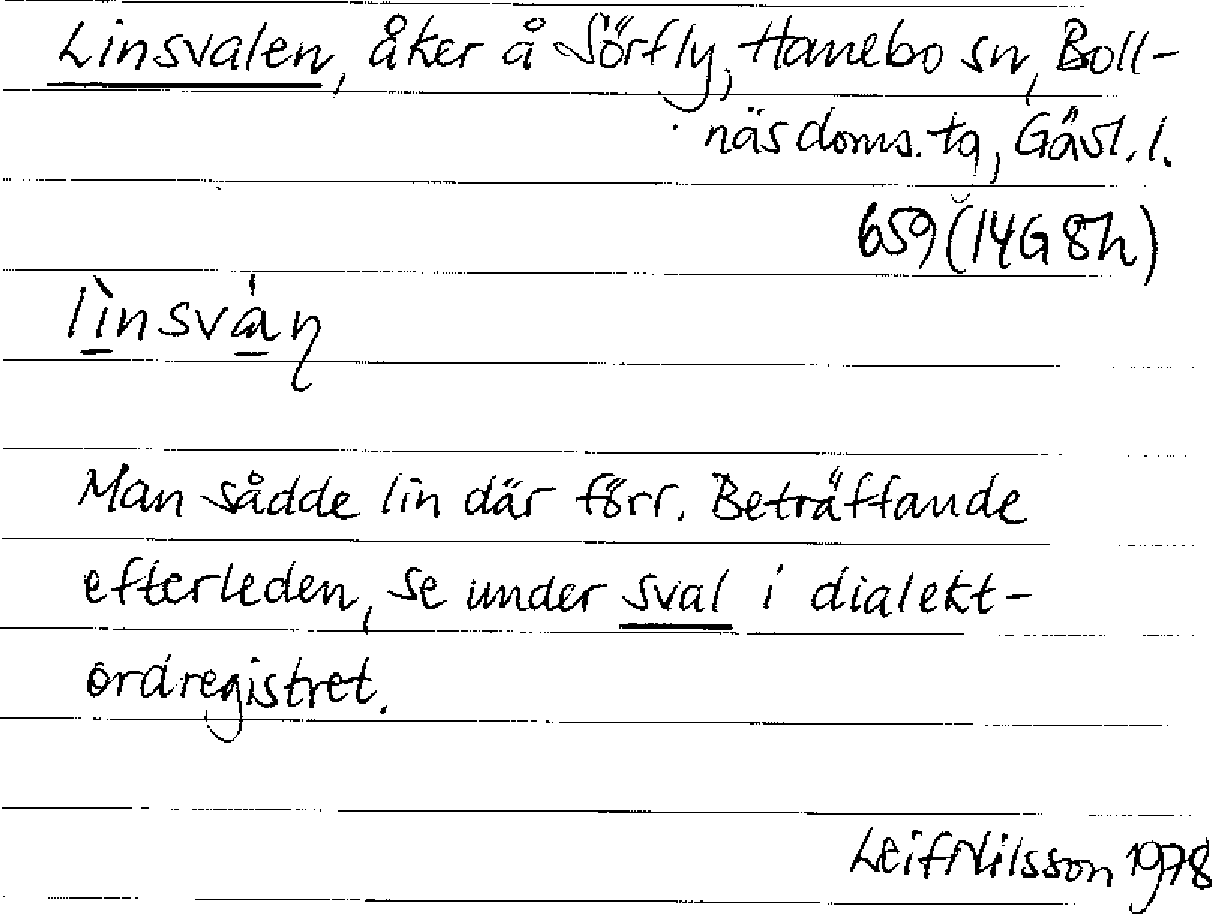 Linsvalen, åker å Sörfly, Hanebo sn, Boll-
näs doms. tg, Gävl. l.
659 (14G 8h)
lìnsvàṇ
Man sådde lin där förr. Beträffande
efterleden, se under sval i dialekt-
ordregistret.
Leif Nilsson 1978